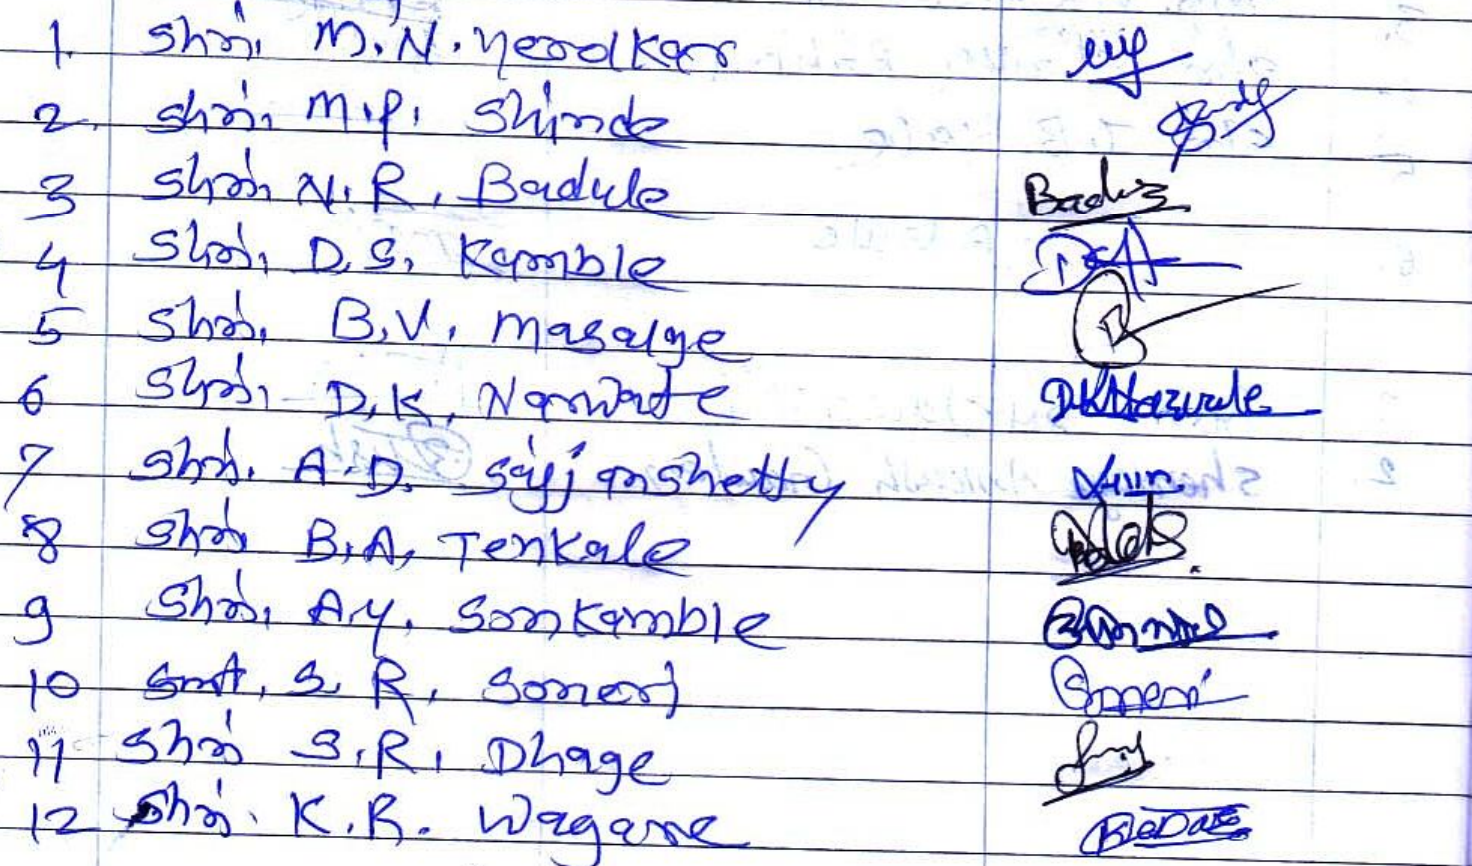 1. Shri, M.N. Yerolkar
2. Shri, M.P. Shinde
3 Shri, N.R. Badule Badule
4 Shri, D.S. Kamble
5 Shri, B.V. Masalge B
6 Shri, D.K. Narwate DKNarwate
7 Shri. A.D. Sajjanshetty
8 Shri B.A. Tenkale
9 Shri, A.Y. Sonkamble
10 Smt, S.R. Soneri Soneri
11 Shri S.R. Dhage
12 Shri. K.R. Wagare